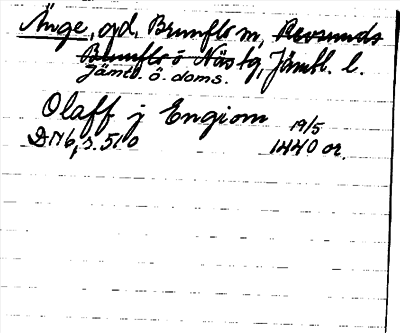 Änge, gd, Brunflo sn, Revsunds
Brunflo o Näs tg, Jämtl. l.
Jämtl. ö. doms.
Olaff j Engiom 19/5
DN 6, s. 510 1440 or.